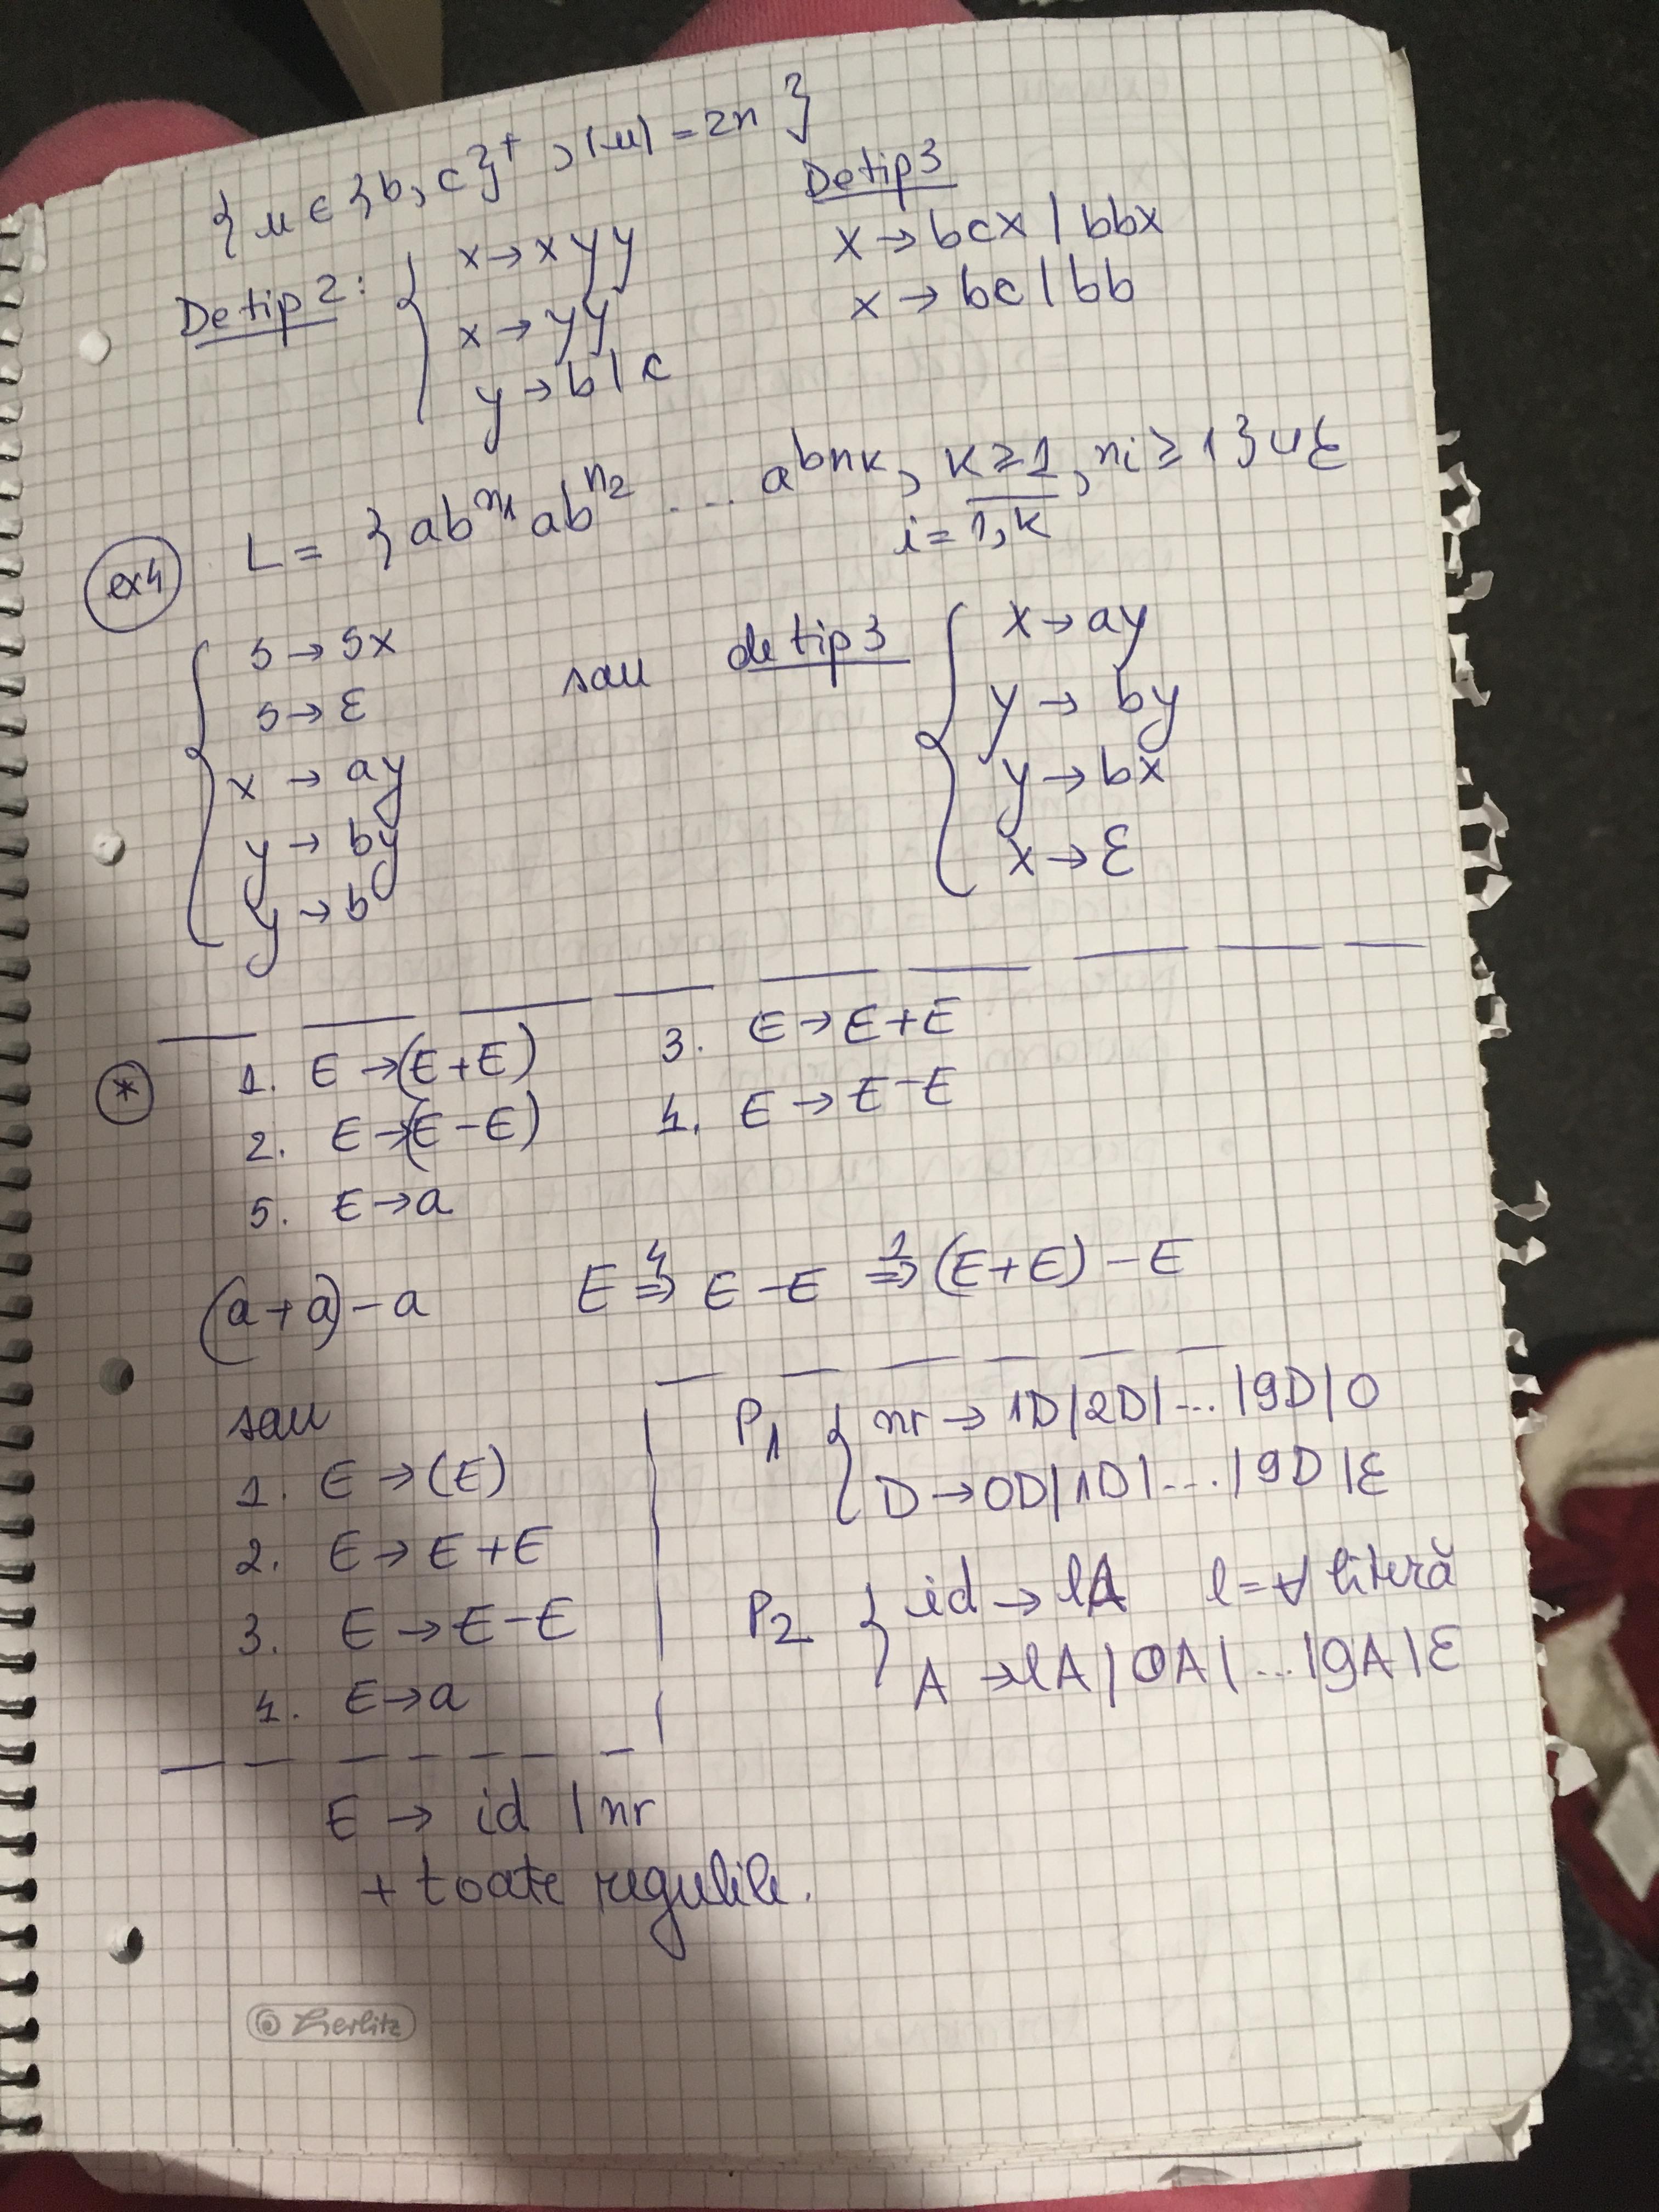 { u ∈ {b, c}⁺, |u| = 2n }
De tip 2: { x → x y y
x → y y
y → b | c
De tip 3
X → bcX | bbX
X → bc | bb
ex4 L = { ab^n1 ab^n2 ... a^bnk, k ≥ 1, ni ≥ 1 } ∪ ε
i = 1,k
S → Sx
S → ε
x → ay
y → by
y → b
sau de tip 3
X → ay
y → by
y → bx
X → ε
* 1. E → (E+E)
2. E → (E-E)
3. E → E+E
4. E → E-E
5. E → a
(a+a)-a E ⇒⁴ E-E ⇒¹ (E+E)-E
sau
1. E → (E)
2. E → E+E
3. E → E-E
4. E → a
P1 { nr → 1D|2D|...|9D|0
D → 0D|1D|...|9D|ε
P2 { id → lA l = ∀ literă
A → lA|0A|...|9A|ε
E → id | nr
+ toate regulile.
Herlitz